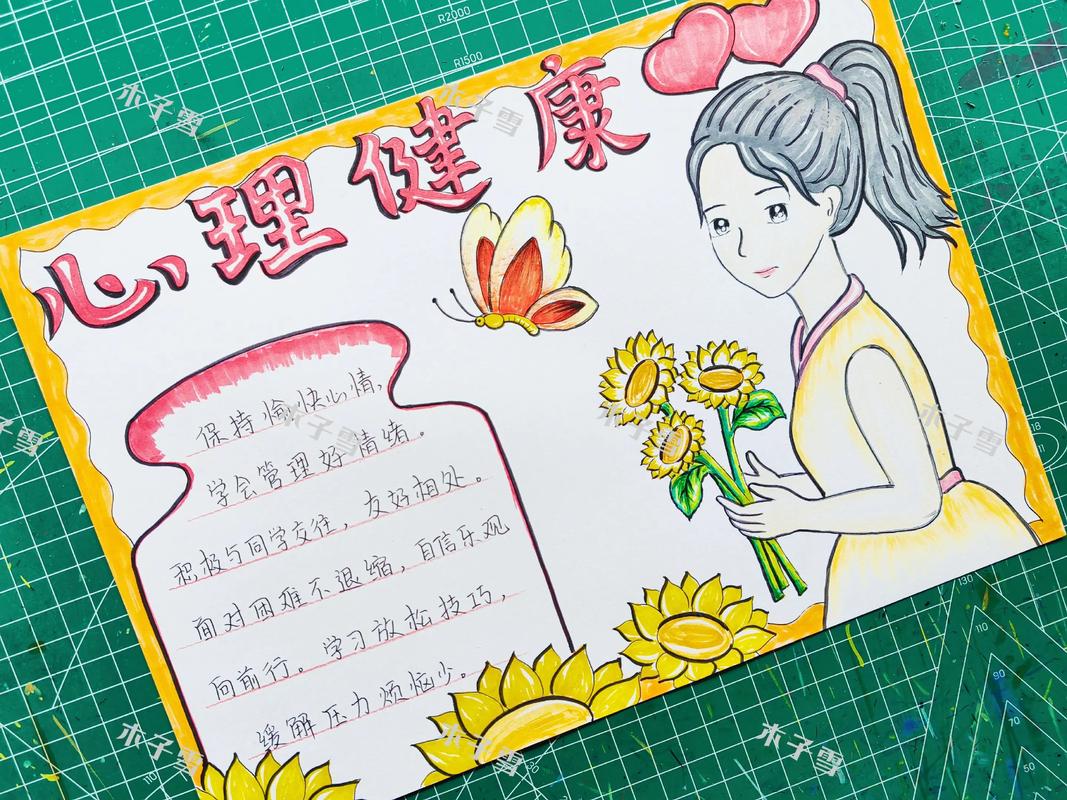 心理健康
保持愉快心情,
学会管理好情绪。
积极与同学交往，友好相处。
面对困难不退缩，自信乐观
向前行。学习放松技巧，
缓解压力烦恼少。
R2000
R1500
木子雪
木子雪
木子雪
木子雪
木子雪
木子雪
木子雪
木子雪
130
110
90
70
50
110